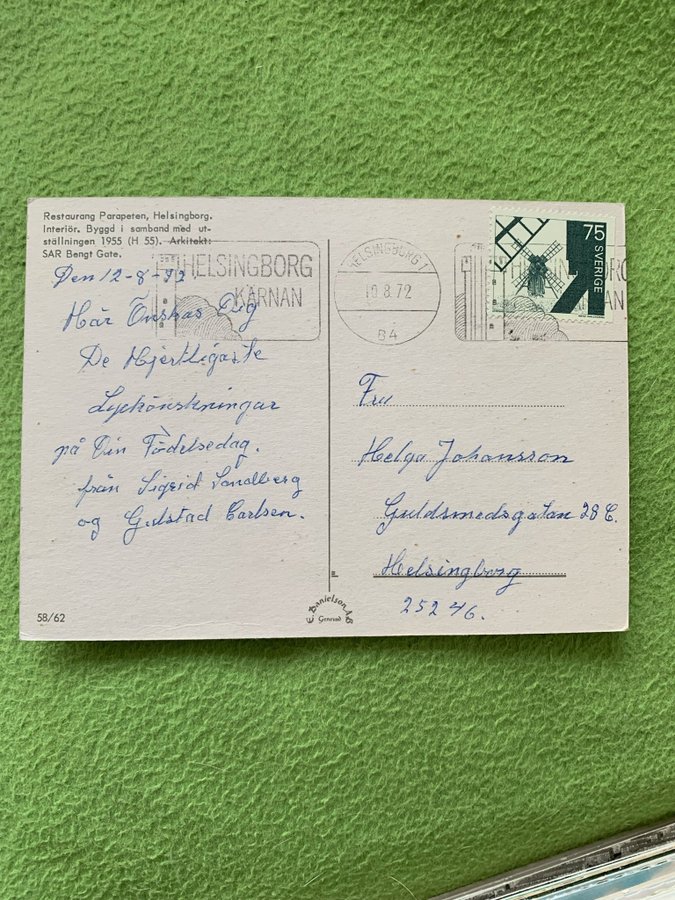 Restaurang Parapeten, Helsingborg.
Interiör. Byggd i samband med ut-
ställningen 1955 (H 55). Arkitekt:
SAR Bengt Gate.
Den 12-8-72
Här Önskas Dig
De Hjertligaste
Lyckönskningar
på Din Födelsedag.
från Sigrid Sandberg
og Gulstad Carlsen.
58/62
HELSINGBORG
KÄRNAN
HELSINGBORG 1
10.8.72
B4
75
SVERIGE
Fru
Helga Johansson
Guldsmedsgatan 28 C.
Helsingborg
252 46.
E. Danielson AB